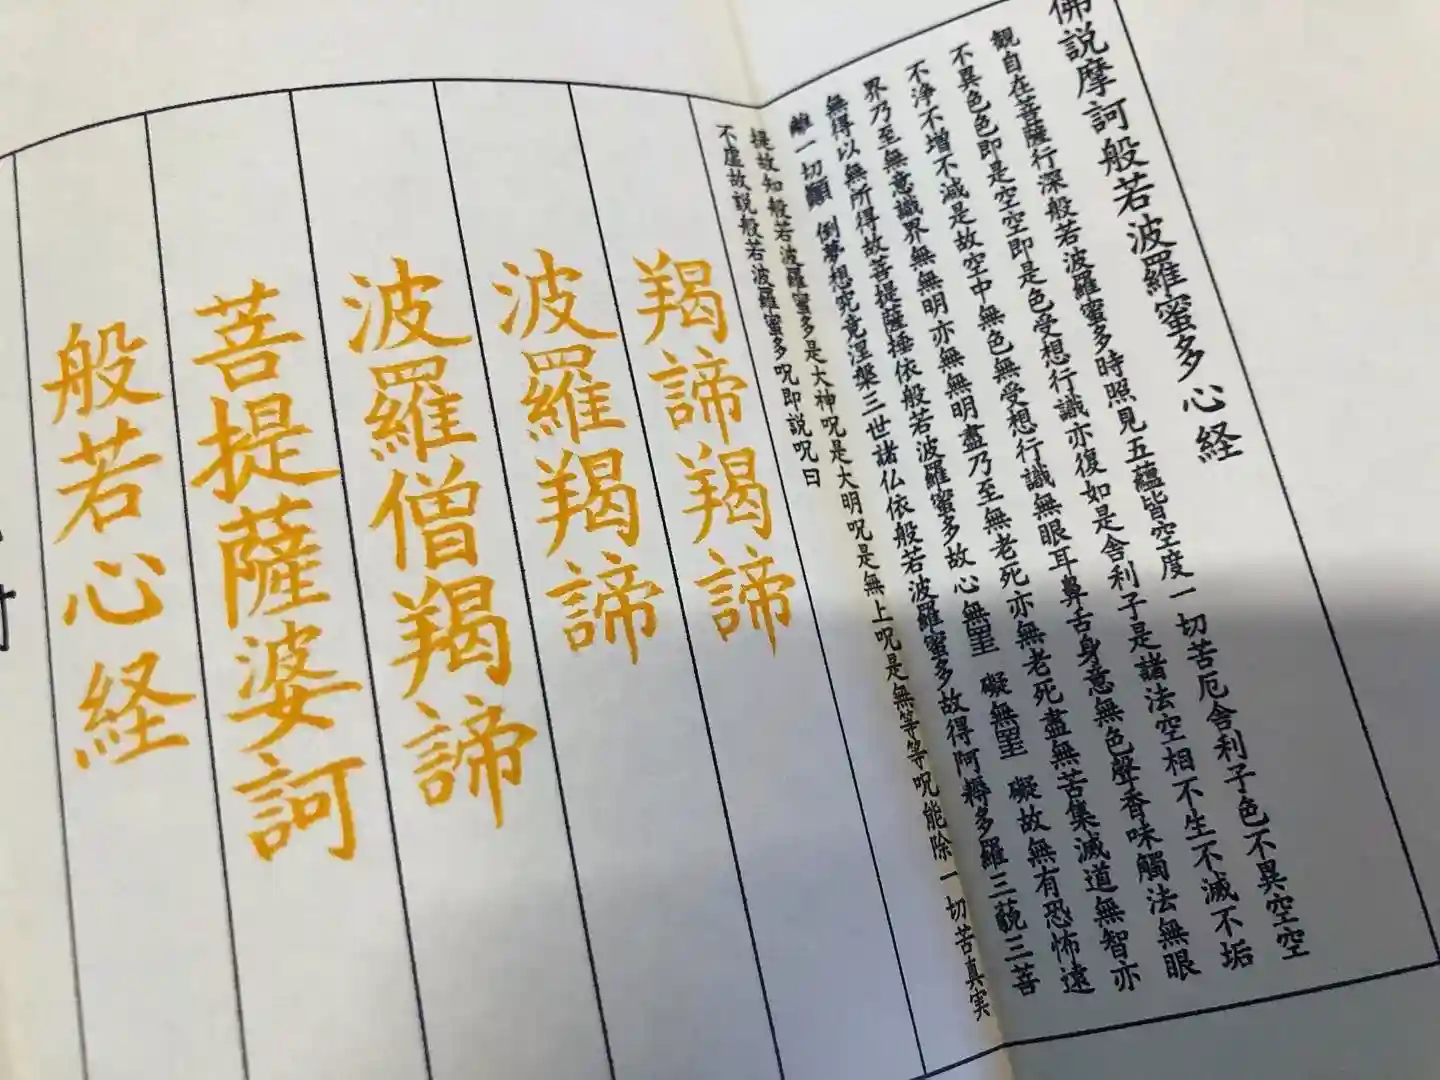 佛説摩訶般若波羅蜜多心経
観自在菩薩行深般若波羅蜜多時照見五蘊皆空度一切苦厄舎利子色不異空空
不異色色即是空空即是色受想行識亦復如是舎利子是諸法空相不生不滅不垢
不浄不増不減是故空中無色無受想行識無眼耳鼻舌身意無色聲香味觸法無眼
界乃至無意識界無無明亦無無明盡乃至無老死亦無老死盡無苦集滅道無智亦
無得以無所得故菩提薩埵依般若波羅蜜多故心無罣 礙無罣 礙故無有恐怖遠
離一切顛 倒夢想究竟涅槃三世諸仏依般若波羅蜜多故得阿耨多羅三藐三菩
提故知般若波羅蜜多是大神呪是大明呪是無上呪是無等等呪能除一切苦真実
不虚故説般若波羅蜜多呪即説呪曰
羯諦羯諦
波羅羯諦
波羅僧羯諦
菩提薩婆訶
般若心経